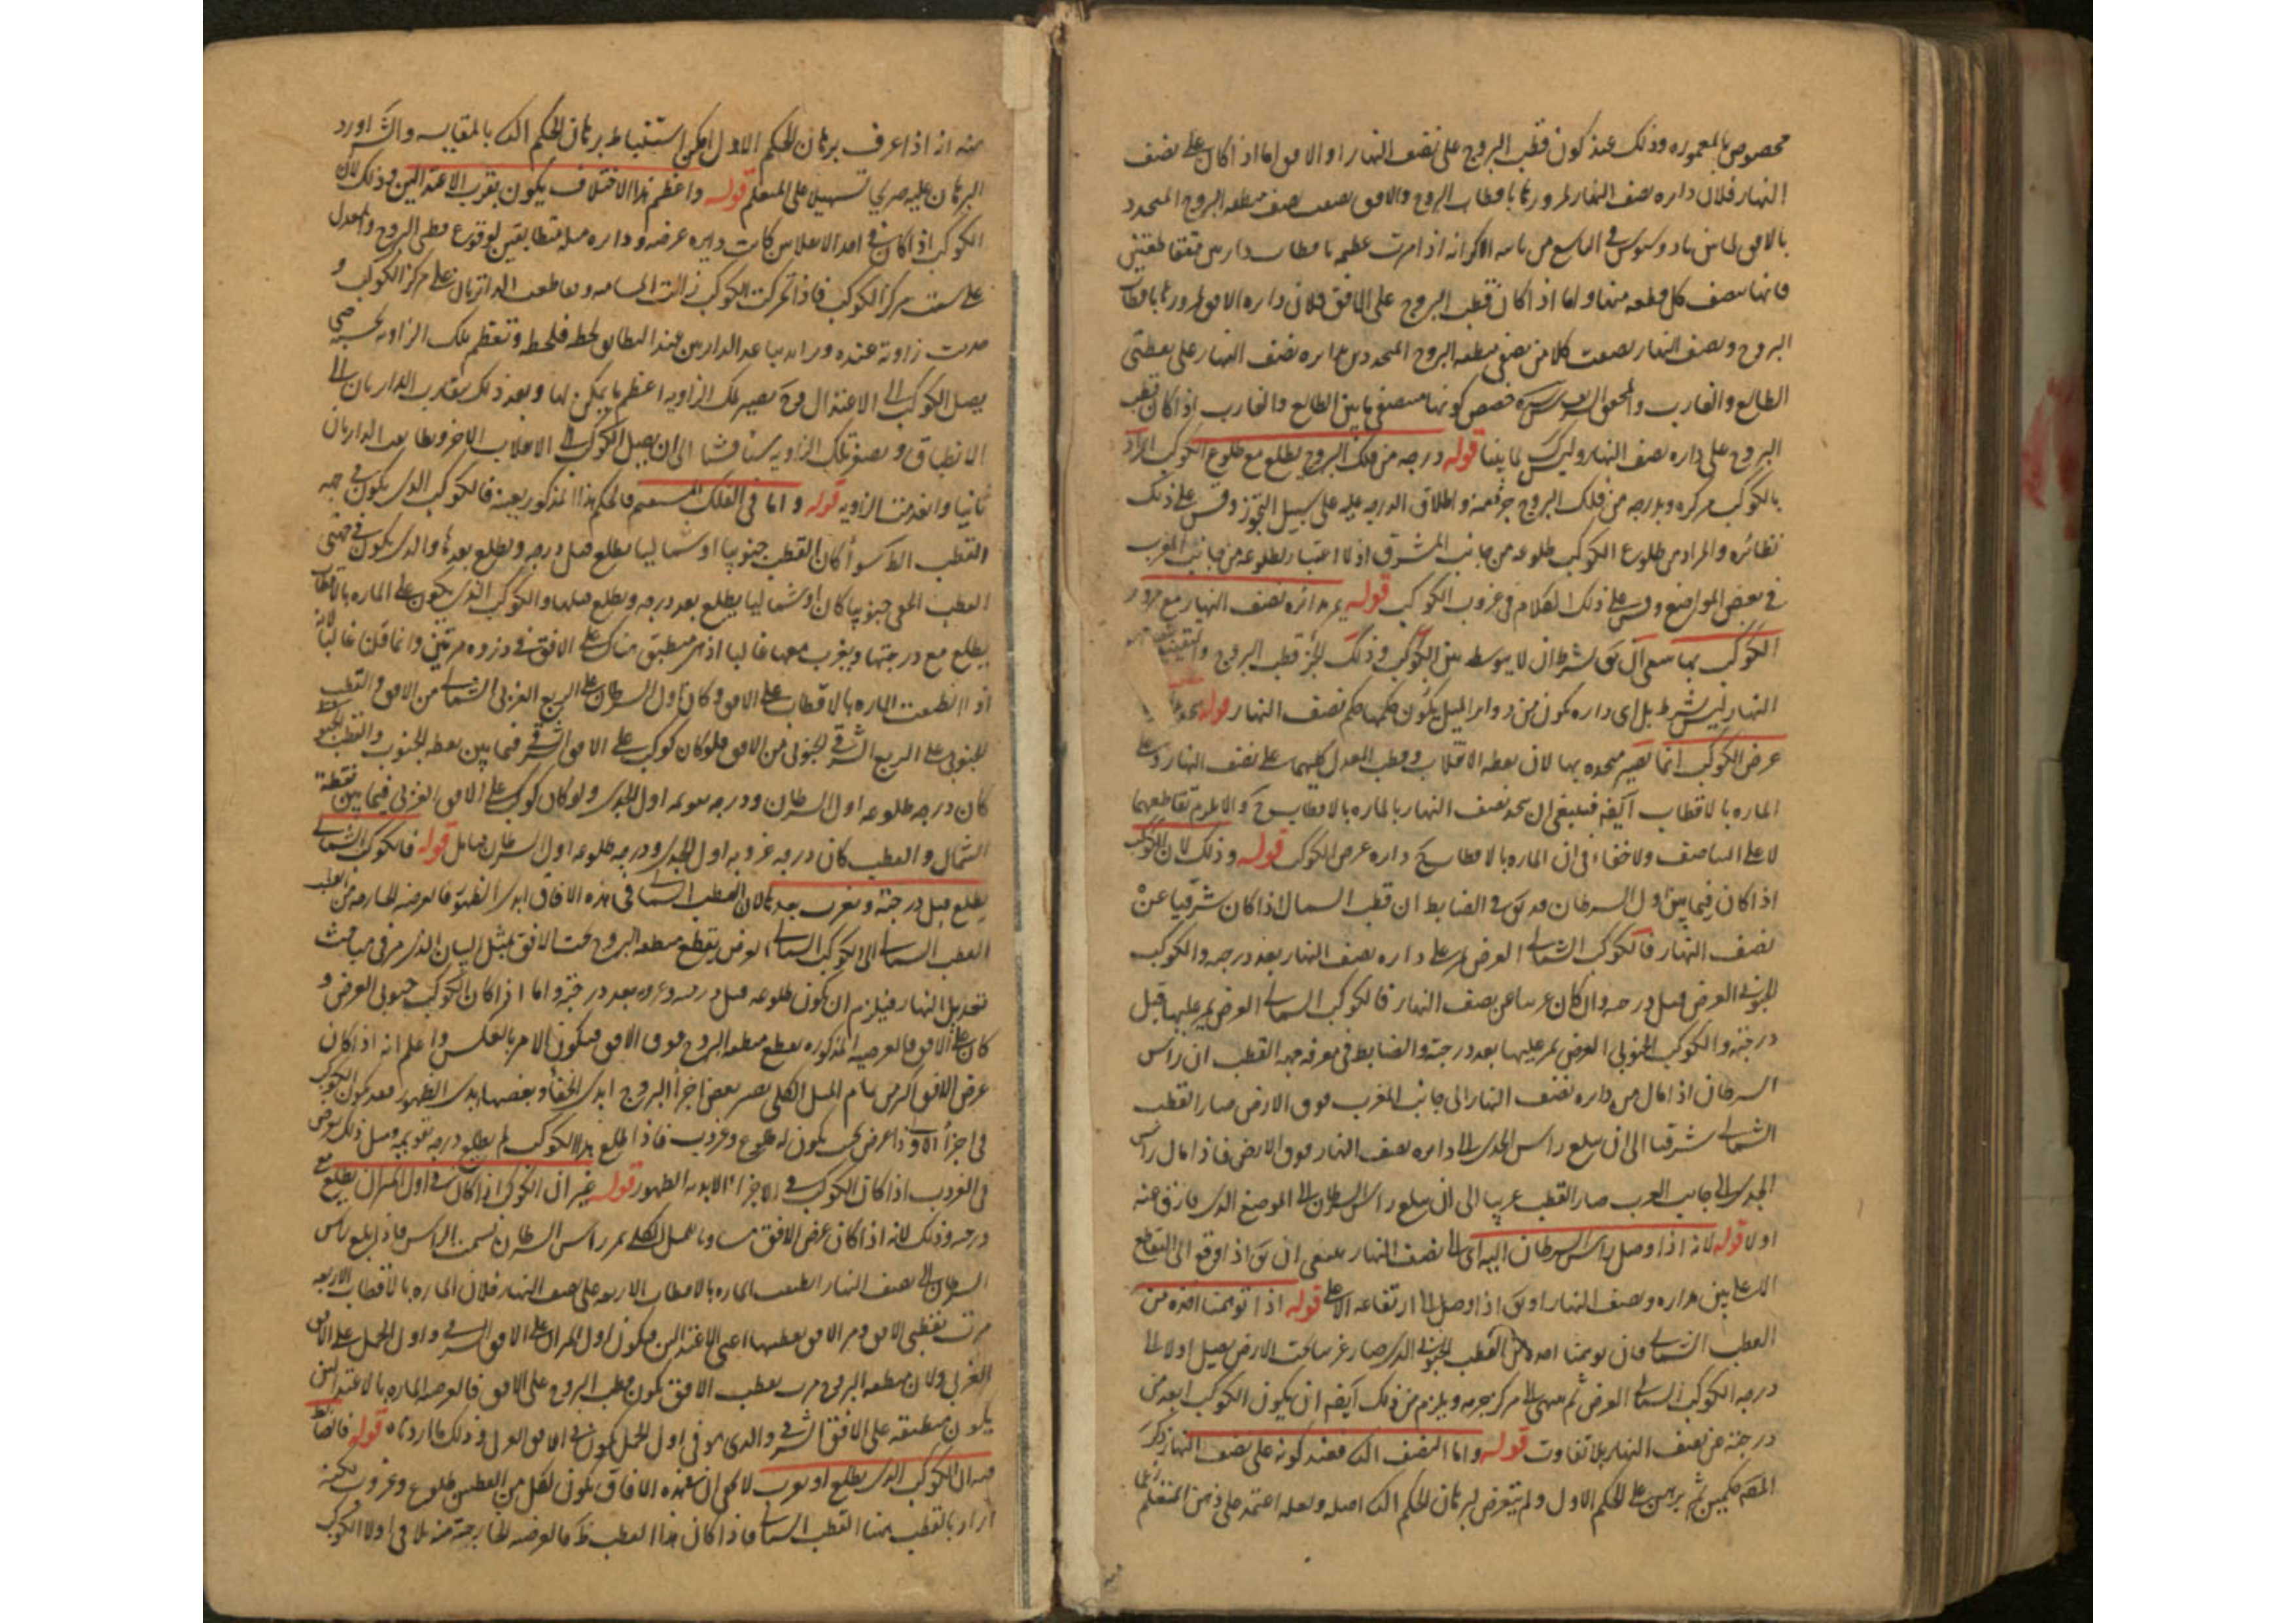 مخصوص بالمعموره وذلك عند كون قطب البروج على نصف النهار او الافق اما اذا كان على نصف
النهار فلان داره نصف النهار لمرورها باقطاب البروج والافق نصف منطقه البروج المتحدد
بالافق لما بين في من انه اذا مرت عظيمه باقطاب متقاطعتين
فانها تنصف كل قطعه منها واما اذا كان قطب البروج على الافق فلان داره الافق لمرورها باقطاب
البروج ونصف النهار نصفت كلا من نصفى منطقه البروج المتحددين بدايره نصف النهار على نقطتى
الطالع والغارب والمحقق الشريف خصص كونها منتصف ما بين الطالع والغارب اذا كان قطب
البروج على داره نصف النهار وليس لما ينبغى قوله درجه من فلك البروج يطلع مع طلوع الكوكب المراد
بالكوكب مركزه وبدرجه من فلك البروج جزء منه واطلاق الدرجه عليه على سبيل التجوز وقس على ذلك
نظائره والمراد من طلوع الكوكب طلوعه من جانب المشرق اذ لا اعتبار بطلوعه من جانب المغرب
فى بعض المواضع وقس على ذلك الكلام فى غروب الكوكب قوله يمر بدائره نصف النهار مع مرور
الكوكب بها ينبغى ان يق بشرط ان لا يتوسط بين الكوكب وذلك الجزء قطب البروج
النهار ليس بشرط بل اى داره تكون من دواير الميل يكون حكمها حكم نصف النهار قوله
عرض الكوكب انما تصير متحده بها لان نقطه الانقلاب وقطب المعدل كليهما على نصف النهار وعلى
الماره بالاقطاب ايضه فينبغى ان يتحد نصف النهار بالماره بالاقطاب ح والا يلزم تقاطعهما
لا على التناصف ولا خفاء فى ان الماره بالاقطاب ح داره عرض الكوكب قوله وذلك لان الكوكب
اذا كان فيما بين اول السرطان قد يق فى الضابط ان قطب الشمال اذا كان شرقيا عن
نصف النهار فالكوكب الشمالى العرض يمر على داره نصف النهار بعد درجه والكوكب
الجنوبى العرض قبل درجه وان كان غربيا عن نصف النهار فالكوكب الشمالى العرض يمر عليها قبل
درجته والكوكب الجنوبى العرض يمر عليها بعد درجته والضابط فى معرفه جهه القطب ان راس
السرطان اذا مال من داره نصف النهار الى جانب المغرب فوق الارض صار القطب
الشمالى شرقيا الى ان يبلغ راس الجدى الى دايره نصف النهار فوق الارض فاذا مال راس
الجدى الى جانب الغرب صار القطب غربيا الى ان يبلغ راس السرطان الى الموضع الذى فارق عنه
اولا قوله لانه اذا وصل راس السرطان اليه اى الى نصف النهار ينبغى ان يق اذا وقع الى التقاطع
الاعلى بين مداره ونصف النهار او يق اذا وصل الى ارتفاعه الاعلى قوله اذا توهمنا اخذه من
القطب الشمالى فان توهمنا اخذه من القطب الجنوبى الذى صار غربيا تحت الارض يصل اولا الى
درجه الكوكب الشمالى العرض ثم ينتهى الى مركز جرمه ويلزم من ذلك ايضه ان يكون الكوكب ابعد من
درجته عن نصف النهار بلا تفاوت قوله واما النصف الاخر فعند كونه على نصف النهار ذكر
المصه حكمين ثم برهن على الحكم الاول ولم يتعرض لبرهان الحكم الثانى اصلا ولعله اعتمد على ذهن المتعلم
منه اذ اذا عرف برهان الحكم الاول امكن استنباط برهان الحكم الثانى بالمقايسه والشارح اورد
البرهان عليه صريحا تسهيلا على المتعلم قوله واعظم هذا الاختلاف يكون بقرب الاعتدالين وذلك لان
الكوكب اذا كان فى احد الانقلابين كانت دايره عرضه ودايره ميله متطابقتين لوقوع قطبى البروج والمعدل
على سمت مركز الكوكب فاذا تحركت الكوكب زالت المسامته وتقاطعت الدائرتان على مركز الكوكب و
حدثت زاويه عنده وتزايد تباعد الدايرتين عند التطابق لحظه فلحظه وتعظم تلك الزاويه بحسبه حتى
يصل الكوكب الى الاعتدال وح تصير تلك الزاويه اعظم ما يمكن لها وبعد ذلك يتقارب الدايرتان الى
الانطباق وتصغر تلك الزاويه شيئا فشيئا الى ان يصل الكوكب الى الانقلاب الاخر وتطابقت الدايرتان
ثانيا وانعدمت الزاويه قوله واما فى الفلك المستقيم فالحكم هذا المذكور بعينه فالكوكب الذى يكون فى جهه
القطب الظاهر سواء كان القطب جنوبيا او شماليا يطلع قبل درجه ويطلع بعدها والذى يكون فى جهتى
القطب الخفى جنوبيا كان او شماليا يطلع بعد درجه ويطلع قبلها والكوكب الذى يكون على الماره بالاقطاب
يطلع مع درجتها ويغرب معها غالبا اذ هى منطبق هناك على الافق فى دوره مرتين وانما قلنا غالبا لانه
اذا انطبقت الماره بالاقطاب على الافق وكان اول السرطان على الربع الغربى الشمالى من الافق والقطب
الجنوبى على الربع الشرقى الجنوبى من الافق فلو كان كوكب على الافق الشرقى فيما بين نقطه الجنوب والقطب الجنوبى
كان درجه طلوعه اول السرطان ودرجه تقويمه اول الجدى ولو كان كوكب على الافق الغربى فيما بين نقطه
الشمال والقطب كان درجه غروبه اول الجدى ودرجه طلوعه اول السرطان فتامل قوله فالكوكب الشمالى
يطلع قبل درجته ويغرب بعدها لان القطب الشمالى فى هذه الافاق ابدى الظهور فالعرضيه الخارجه من القطب
القطب الشمالى الى الكوكب الشمالى العرض يقطع منطقه البروج تحت الافق بمثل البيان الذى مر فى مباحث
تعديل النهار فيلزم ان يكون طلوعه قبل درجته وغروبه بعد درجته واما اذا كان الكوكب جنوبى العرض و
كان على الافق فالعرضيه المذكوره يقطع منطقه البروج فوق الافق فيكون الامر بالعكس واعلم انه اذا كان
عرض الافق اكثر من تمام الميل الكلى يصير بعض اجزاء البروج ابدى الخفاء وبعضها ابدى الظهور فقد يكون الكوكب
فى اجزاء الاول ذا عرض بحيث يكون له طلوع وغروب فاذا طلع هذا الكوكب لم يطلع درجه تقويمه ومثل ذلك يعرض
فى الغروب اذا كان الكوكب فى الاجزاء الابديه الظهور قوله غير ان الكوكب اذا كان فى اول الميزان يطلع مع
درجه وذلك لانه اذا كان عرض الافق مساويا للميل الكلى يمر راس السرطان بسمت الراس فاذا بلغ راس
السرطان الى نصف النهار انطبقت الماره بالاقطاب الاربعه على نصف النهار فلان الماره بالاقطاب الاربعه
مرت بقطبى الافق ومر الافق بقطبيها اعنى الاعتدالين فيكون اول الميزان على الافق الشرقى واول الحمل على الافق
الغربى ولان منطقه البروج مرت بقطب الافق يكون قطب البروج على الافق فالعرضيه الماره بالاعتدالين
يكون منطبقه على الافق الشرقى والذى هو فى اول الحمل يكون فى الافق الغربى وذلك ما اردناه قوله فالضابط
فيه ان الكوكب الذى يطلع او يغرب لا يخفى ان فى هذه الافاق يكون لكل من القطبين طلوع وغروب لكنه
اراد بالقطب هنا القطب الشمالى فاذا كان هذا القطب ظ فالعرضيه الخارجه منه تلاقى اولا الكوكب